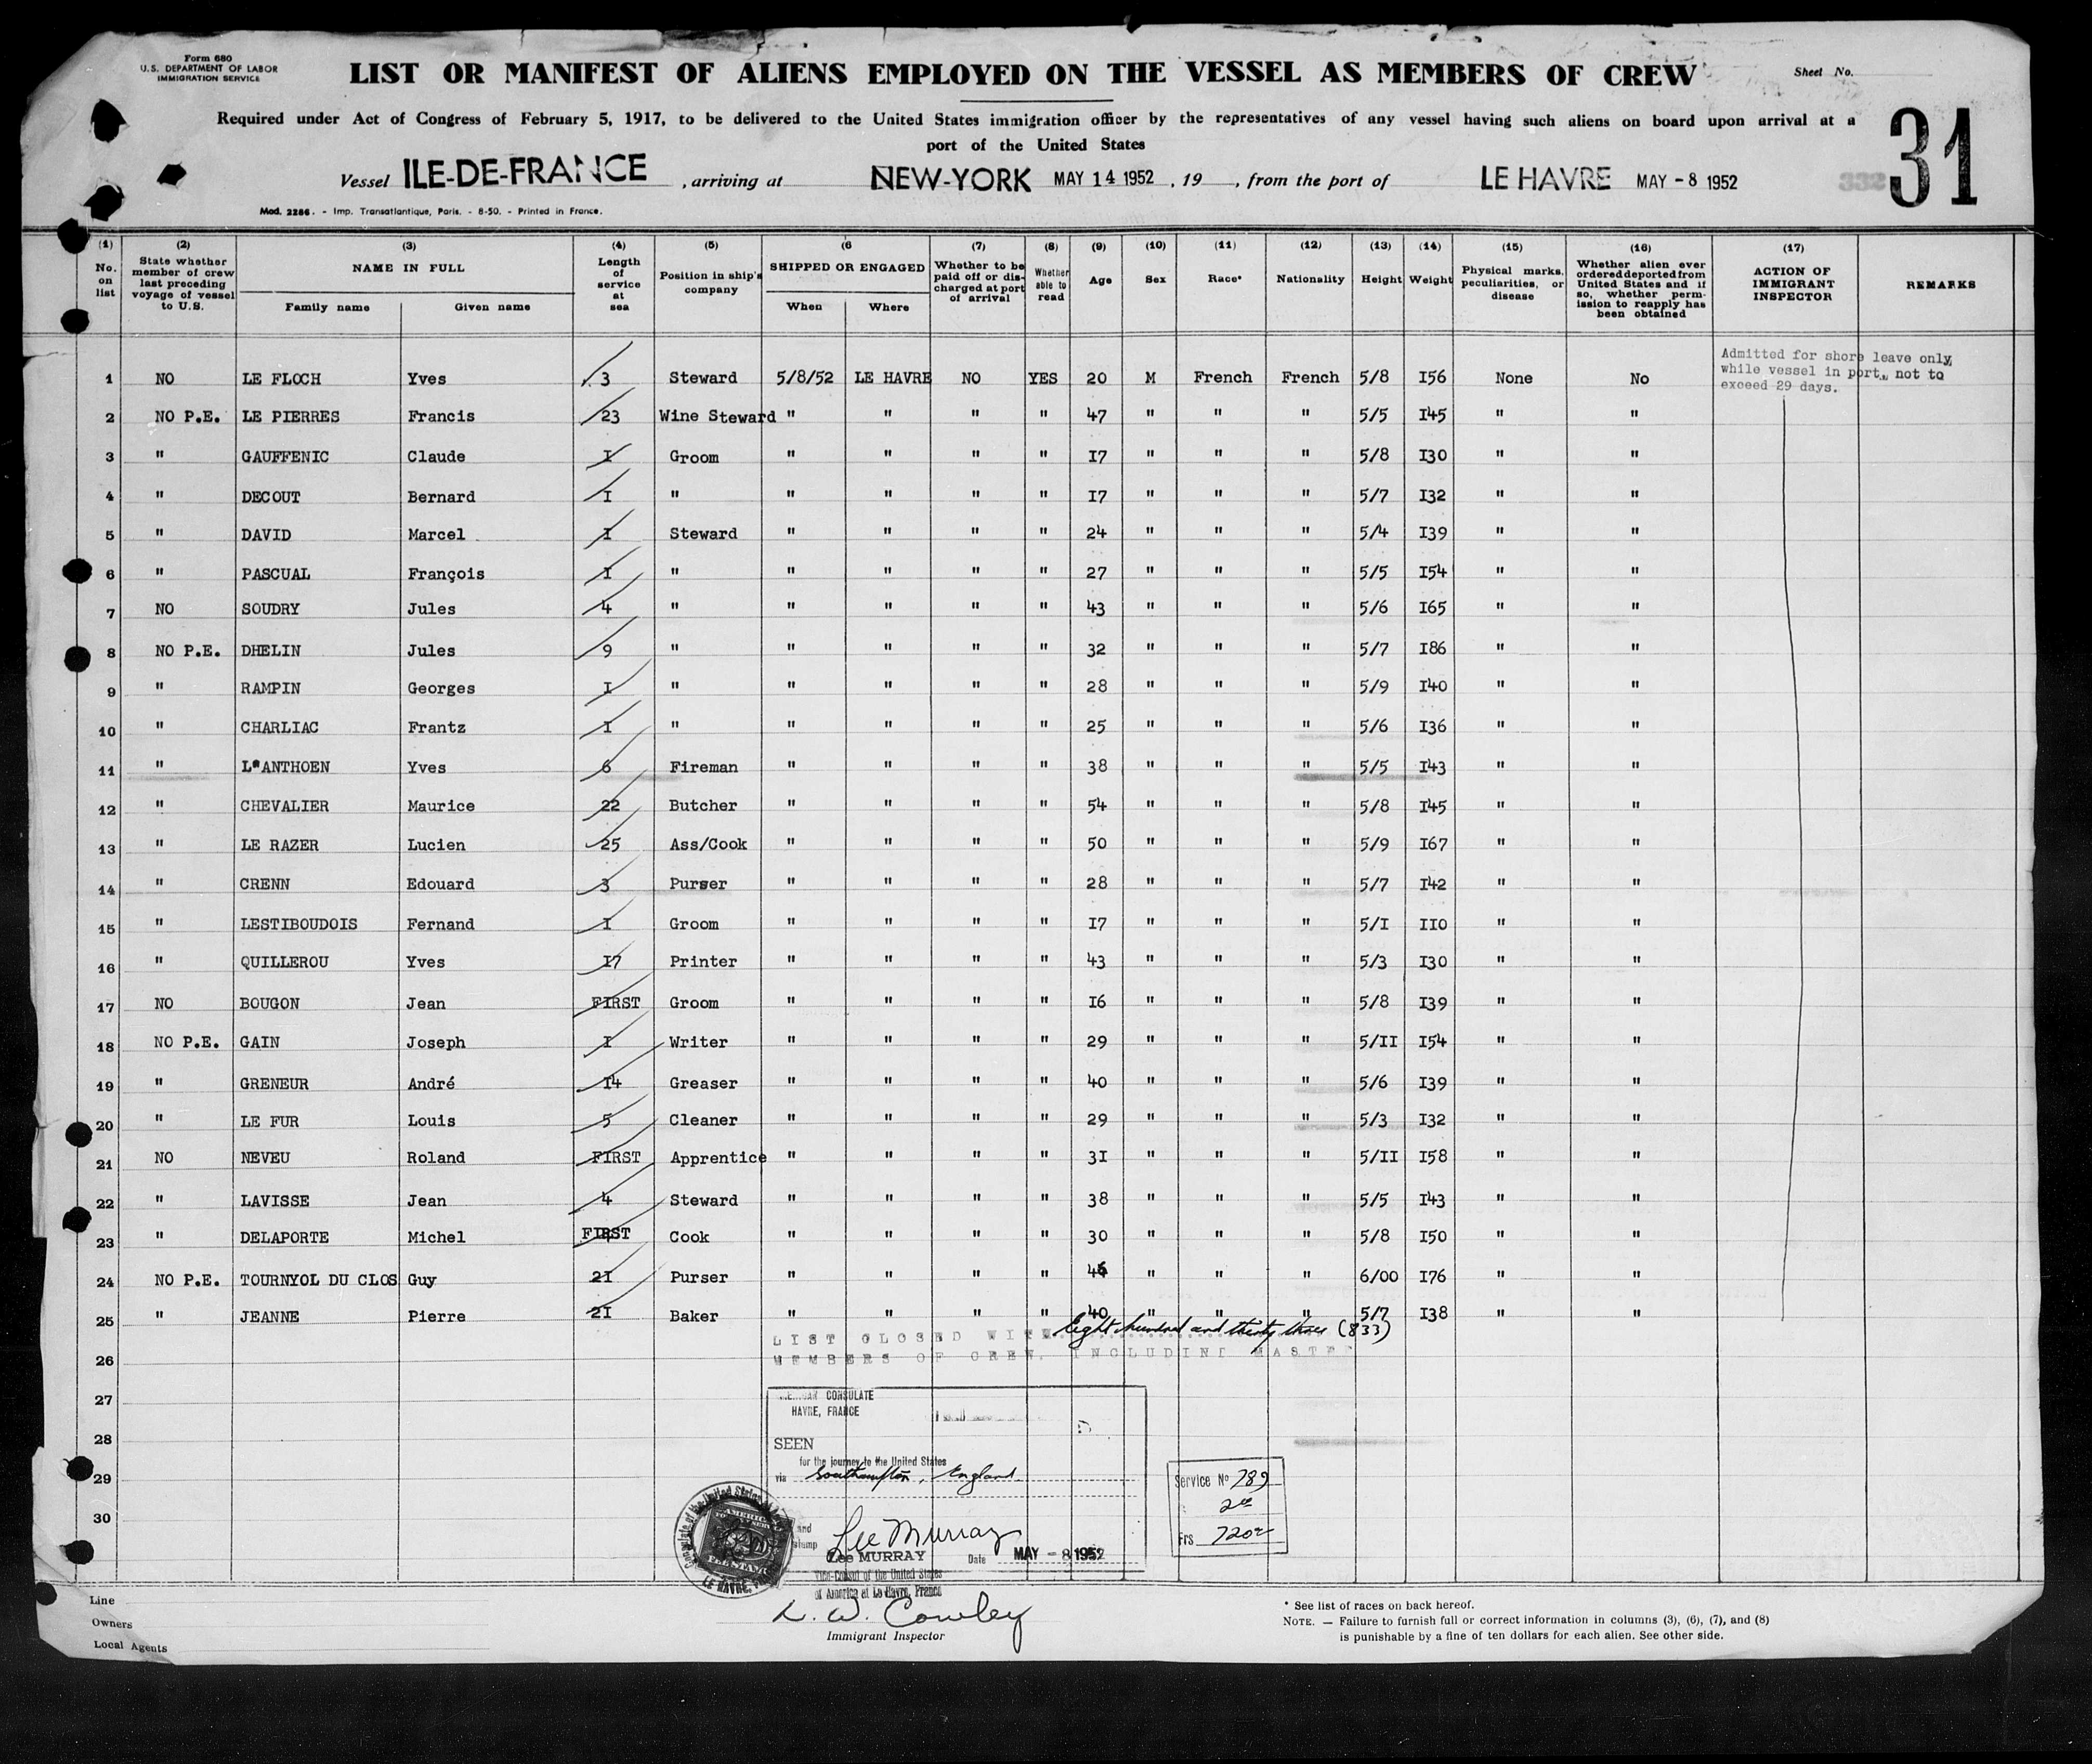 Form 680
U.S. DEPARTMENT OF LABOR
IMMIGRATION SERVICE
LIST OR MANIFEST OF ALIENS EMPLOYED ON THE VESSEL AS MEMBERS OF CREW
Sheet No.
Required under Act of Congress of February 5, 1917, to be delivered to the United States immigration officer by the representatives of any vessel having such aliens on board upon arrival at a
port of the United States
31
332
Vessel ILE-DE-FRANCE , arriving at NEW-YORK MAY 14 1952 , 19 , from the port of LE HAVRE MAY - 8 1952
Mod. 2286. - Imp. Transatlantique, Paris. - 8-50. - Printed in France.
(1) (2) (3) (4) (5) (6 (7) (8) (9) (10) (11) (12) (13) (14) (15) (16) (17)
No. on list
State whether member of crew last preceding voyage of vessel to U.S.
NAME IN FULL
Family name Given name
Length of service at sea
Position in ship's company
SHIPPED OR ENGAGED
When Where
Whether to be paid off or discharged at port of arrival
Whether able to read
Age
Sex
Race*
Nationality
Height
Weight
Physical marks, peculiarities, or disease
Whether alien ever ordered deported from United States and if so, whether permission to reapply has been obtained
ACTION OF IMMIGRANT INSPECTOR
REMARKS
Admitted for shore leave only,
while vessel in port, not to
exceed 29 days.
1 NO LE FLOCH Yves 3 Steward 5/8/52 LE HAVRE NO YES 20 M French French 5/8 I56 None No
2 NO P.E. LE PIERRES Francis 23 Wine Steward " " " " 47 " " " 5/5 I45 " "
3 " GAUFFENIC Claude I Groom " " " " I7 " " " 5/8 I30 " "
4 " DECOUT Bernard I " " " " " I7 " " " 5/7 I32 " "
5 " DAVID Marcel I Steward " " " " 24 " " " 5/4 I39 " "
6 " PASCUAL François I " " " " " 27 " " " 5/5 I54 " "
7 NO SOUDRY Jules 4 " " " " " 43 " " " 5/6 I65 " "
8 NO P.E. DHELIN Jules 9 " " " " " 32 " " " 5/7 I86 " "
9 " RAMPIN Georges I " " " " " 28 " " " 5/9 I40 " "
10 " CHARLIAC Frantz I " " " " " 25 " " " 5/6 I36 " "
11 " L"ANTHOEN Yves 6 Fireman " " " " 38 " " " 5/5 I43 " "
12 " CHEVALIER Maurice 22 Butcher " " " " 54 " " " 5/8 I45 " "
13 " LE RAZER Lucien 25 Ass/Cook " " " " 50 " " " 5/9 I67 " "
14 " CRENN Edouard 3 Purser " " " " 28 " " " 5/7 I42 " "
15 " LESTIBOUDOIS Fernand I Groom " " " " I7 " " " 5/I IIO " "
16 " QUILLEROU Yves I7 Printer " " " " 43 " " " 5/3 I30 " "
17 NO BOUGON Jean FIRST Groom " " " " I6 " " " 5/8 I39 " "
18 NO P.E. GAIN Joseph I Writer " " " " 29 " " " 5/II I54 " "
19 " GRENEUR André I4 Greaser " " " " 40 " " " 5/6 I39 " "
20 " LE FUR Louis 5 Cleaner " " " " 29 " " " 5/3 I32 " "
21 NO NEVEU Roland FIRST Apprentice " " " " 3I " " " 5/II I58 " "
22 " LAVISSE Jean 4 Steward " " " " 38 " " " 5/5 I43 " "
23 " DELAPORTE Michel FIRST Cook " " " " 30 " " " 5/8 I50 " "
24 NO P.E. TOURNYOL DU CLOS Guy 2I Purser " " " " 46 " " " 6/00 I76 " "
25 " JEANNE Pierre 2I Baker " " " " 40 " " " 5/7 I38 " "
LIST CLOSED WITH Eight hundred and thirty three (833)
26 MEMBERS OF CREW, INCLUDING MASTER
27
28
29
30
CONSULATE
HAVRE, FRANCE
SEEN
for the journey to the United States
via Southampton, England
and
stamp
Lee Murray
Lee MURRAY Date MAY - 8 1952
Vice-Consul of the United States
of America at Le Havre, France
Service No 789
Frs 720
L. W. Cowley
Immigrant Inspector
Line
Owners
Local Agents
* See list of races on back hereof.
NOTE. — Failure to furnish full or correct information in columns (3), (6), (7), and (8)
is punishable by a fine of ten dollars for each alien. See other side.